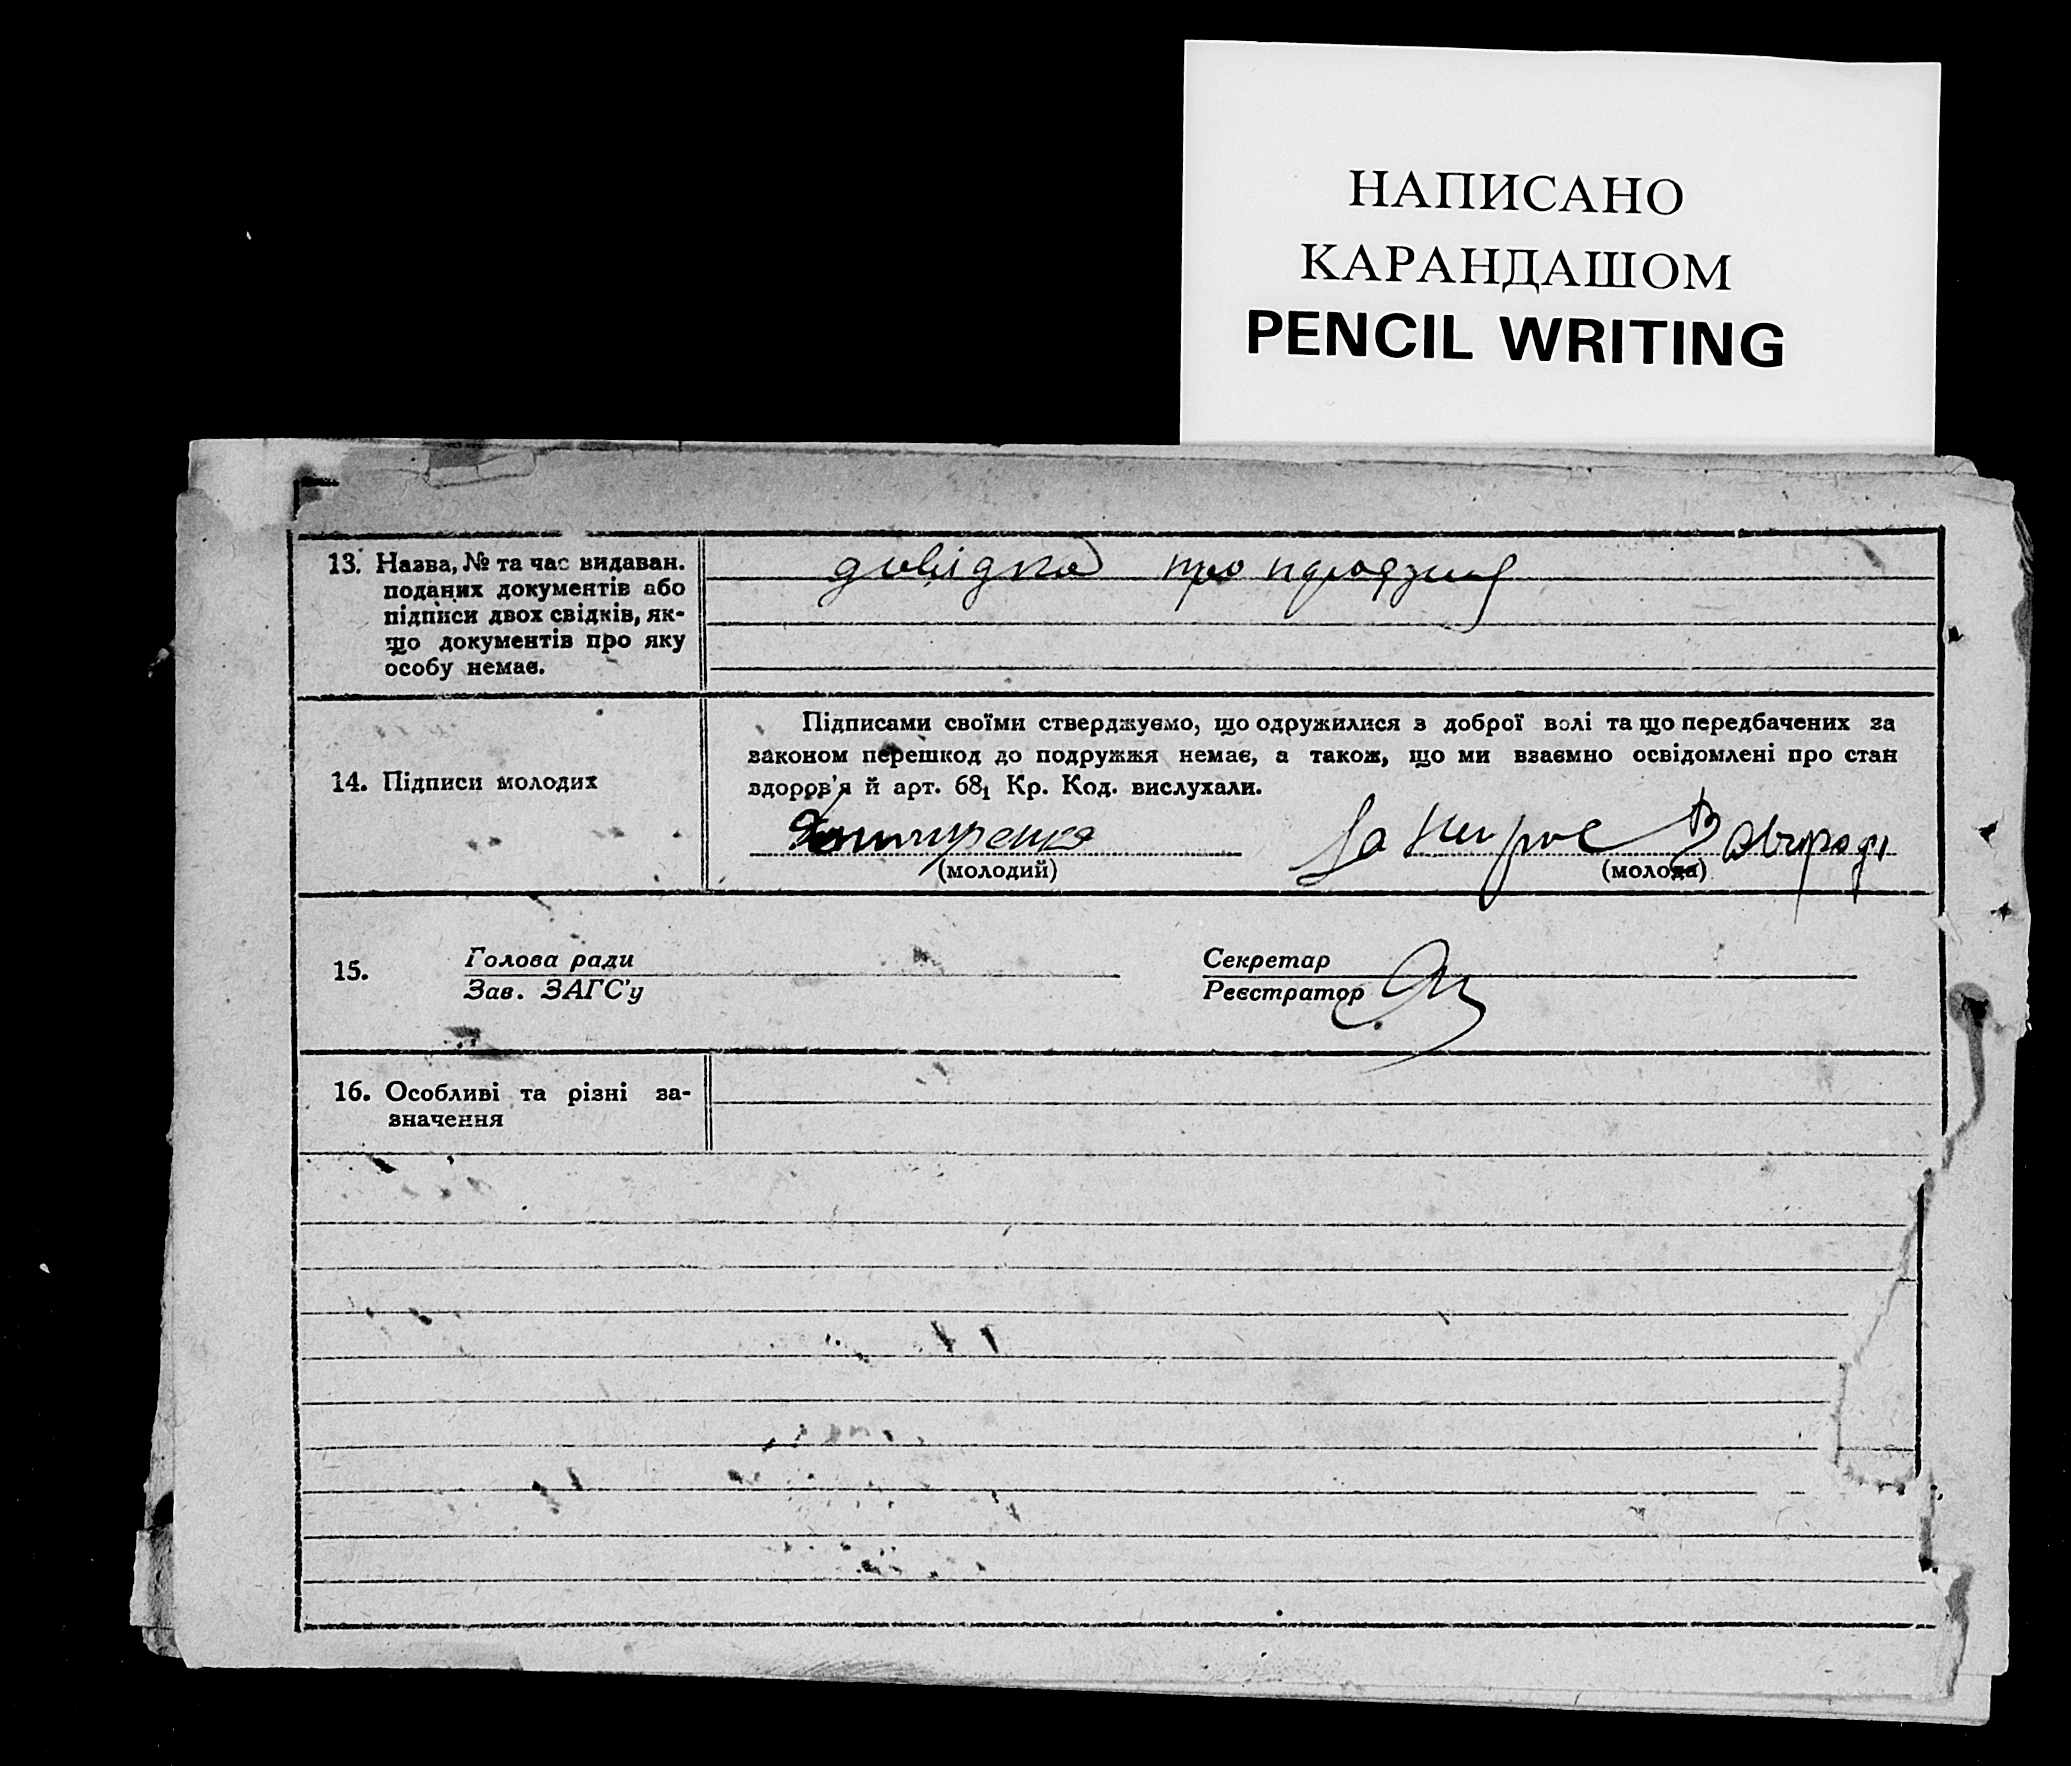 НАПИСАНО
КАРАНДАШОМ
PENCIL WRITING
13. Назва, № та час видаван.
поданих документів або
підписи двох свідків, як-
що документів про яку
особу немає.
довідка про
14. Підписи молодих
Підписами своїми стверджуємо, що одружилися з доброї волі та що передбачених за
законом перешкод до подружжя немає, а також, що ми взаємно освідомлені про стан
здоров'я й арт. 68₁ Кр. Код. вислухали.
(молодий)
(молода)
15.
Голова ради
Зав. ЗАГС'у
Секретар
Реєстратор
16. Особливі та різні за-
значення